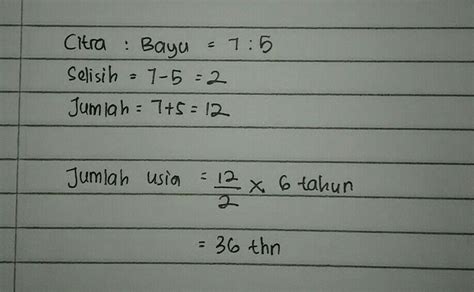 Citra : Bayu = 7 : 5
Selisih = 7-5 = 2
Jumlah = 7+5 = 12
Jumlah usia = 12/2 x 6 tahun
= 36 thn